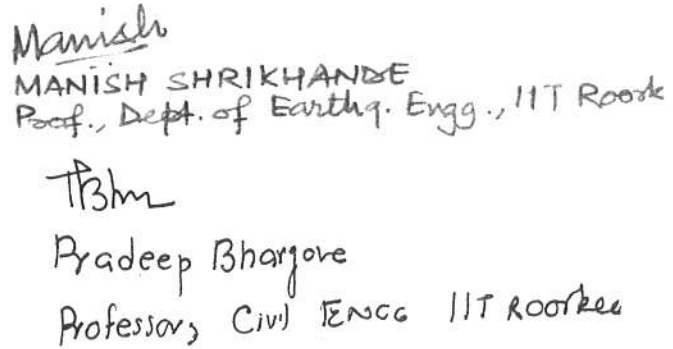 Manish
MANISH SHRIKHANDE
Prof., Dept. of Earthq. Engg., IIT Roork
PBhr
Pradeep Bhargove
Professor, Civil ENGG IIT Roorkee